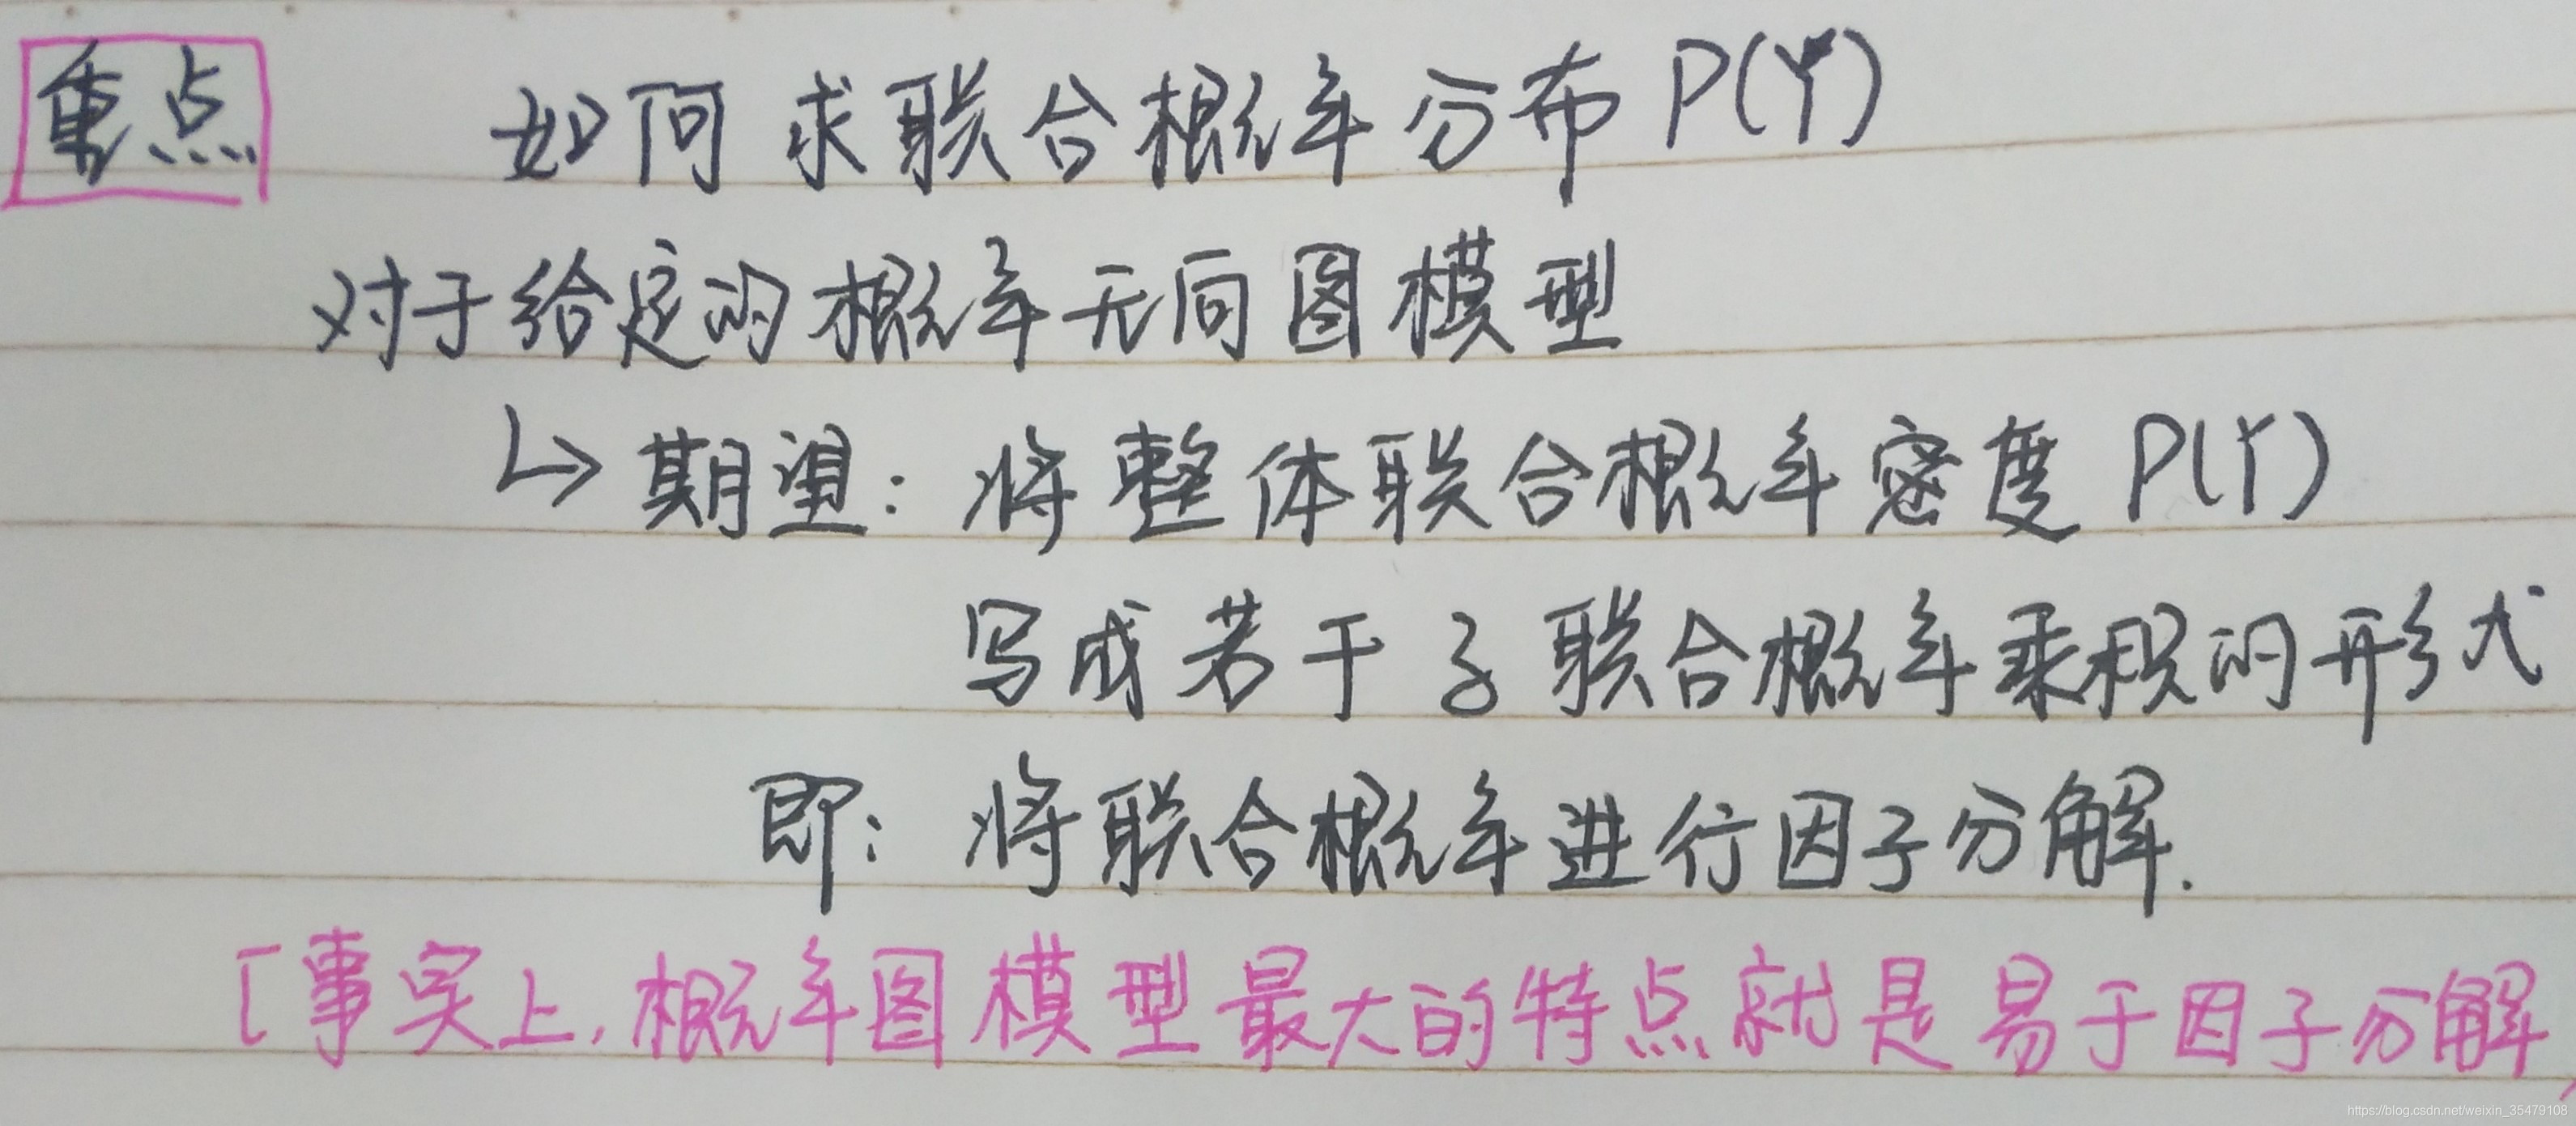 重点 如何求联合概率分布 P(Y)
对于给定的概率无向图模型
↳ 期望：将整体联合概率密度 P(Y)
写成若干子联合概率乘积的形式
即：将联合概率进行因子分解.
[事实上,概率图模型最大的特点就是易于因子分解
https://blog.csdn.net/weixin_35479108